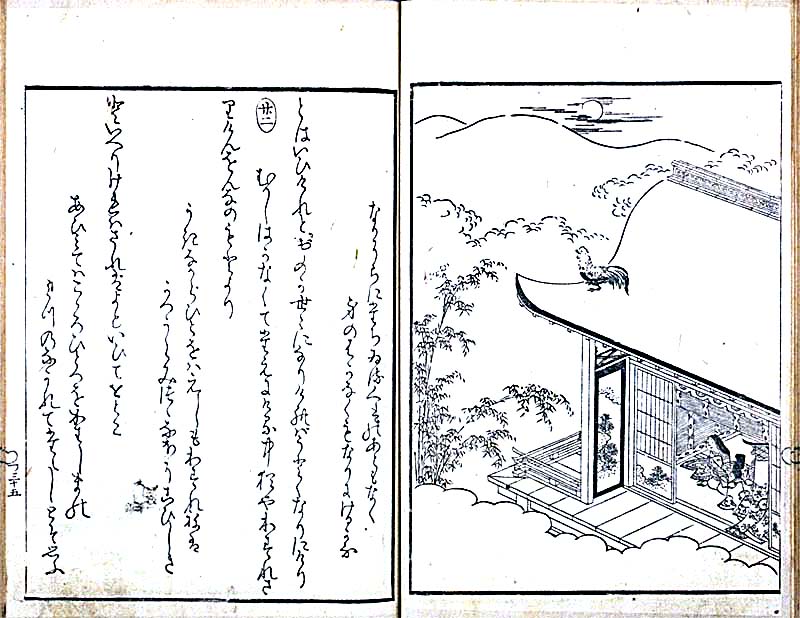 なかそらにたちゐるくものあともなく
身のはかなくもなりにけるかな
とはいひけれとおのか世ゝになりにけれはうとくなりにけり
廿二
むかしはかなくてたえにけるなか猶やわすれさ
りけんをんなのもとより
うきなからひとをはえしもわすれねは
かつうらみつゝなほそこひしき
といへりけれはされはよといひてをとこ
あひ見てはこゝろひとつをかはしまの
水のなかれてたえしとそ思ふ
三十五